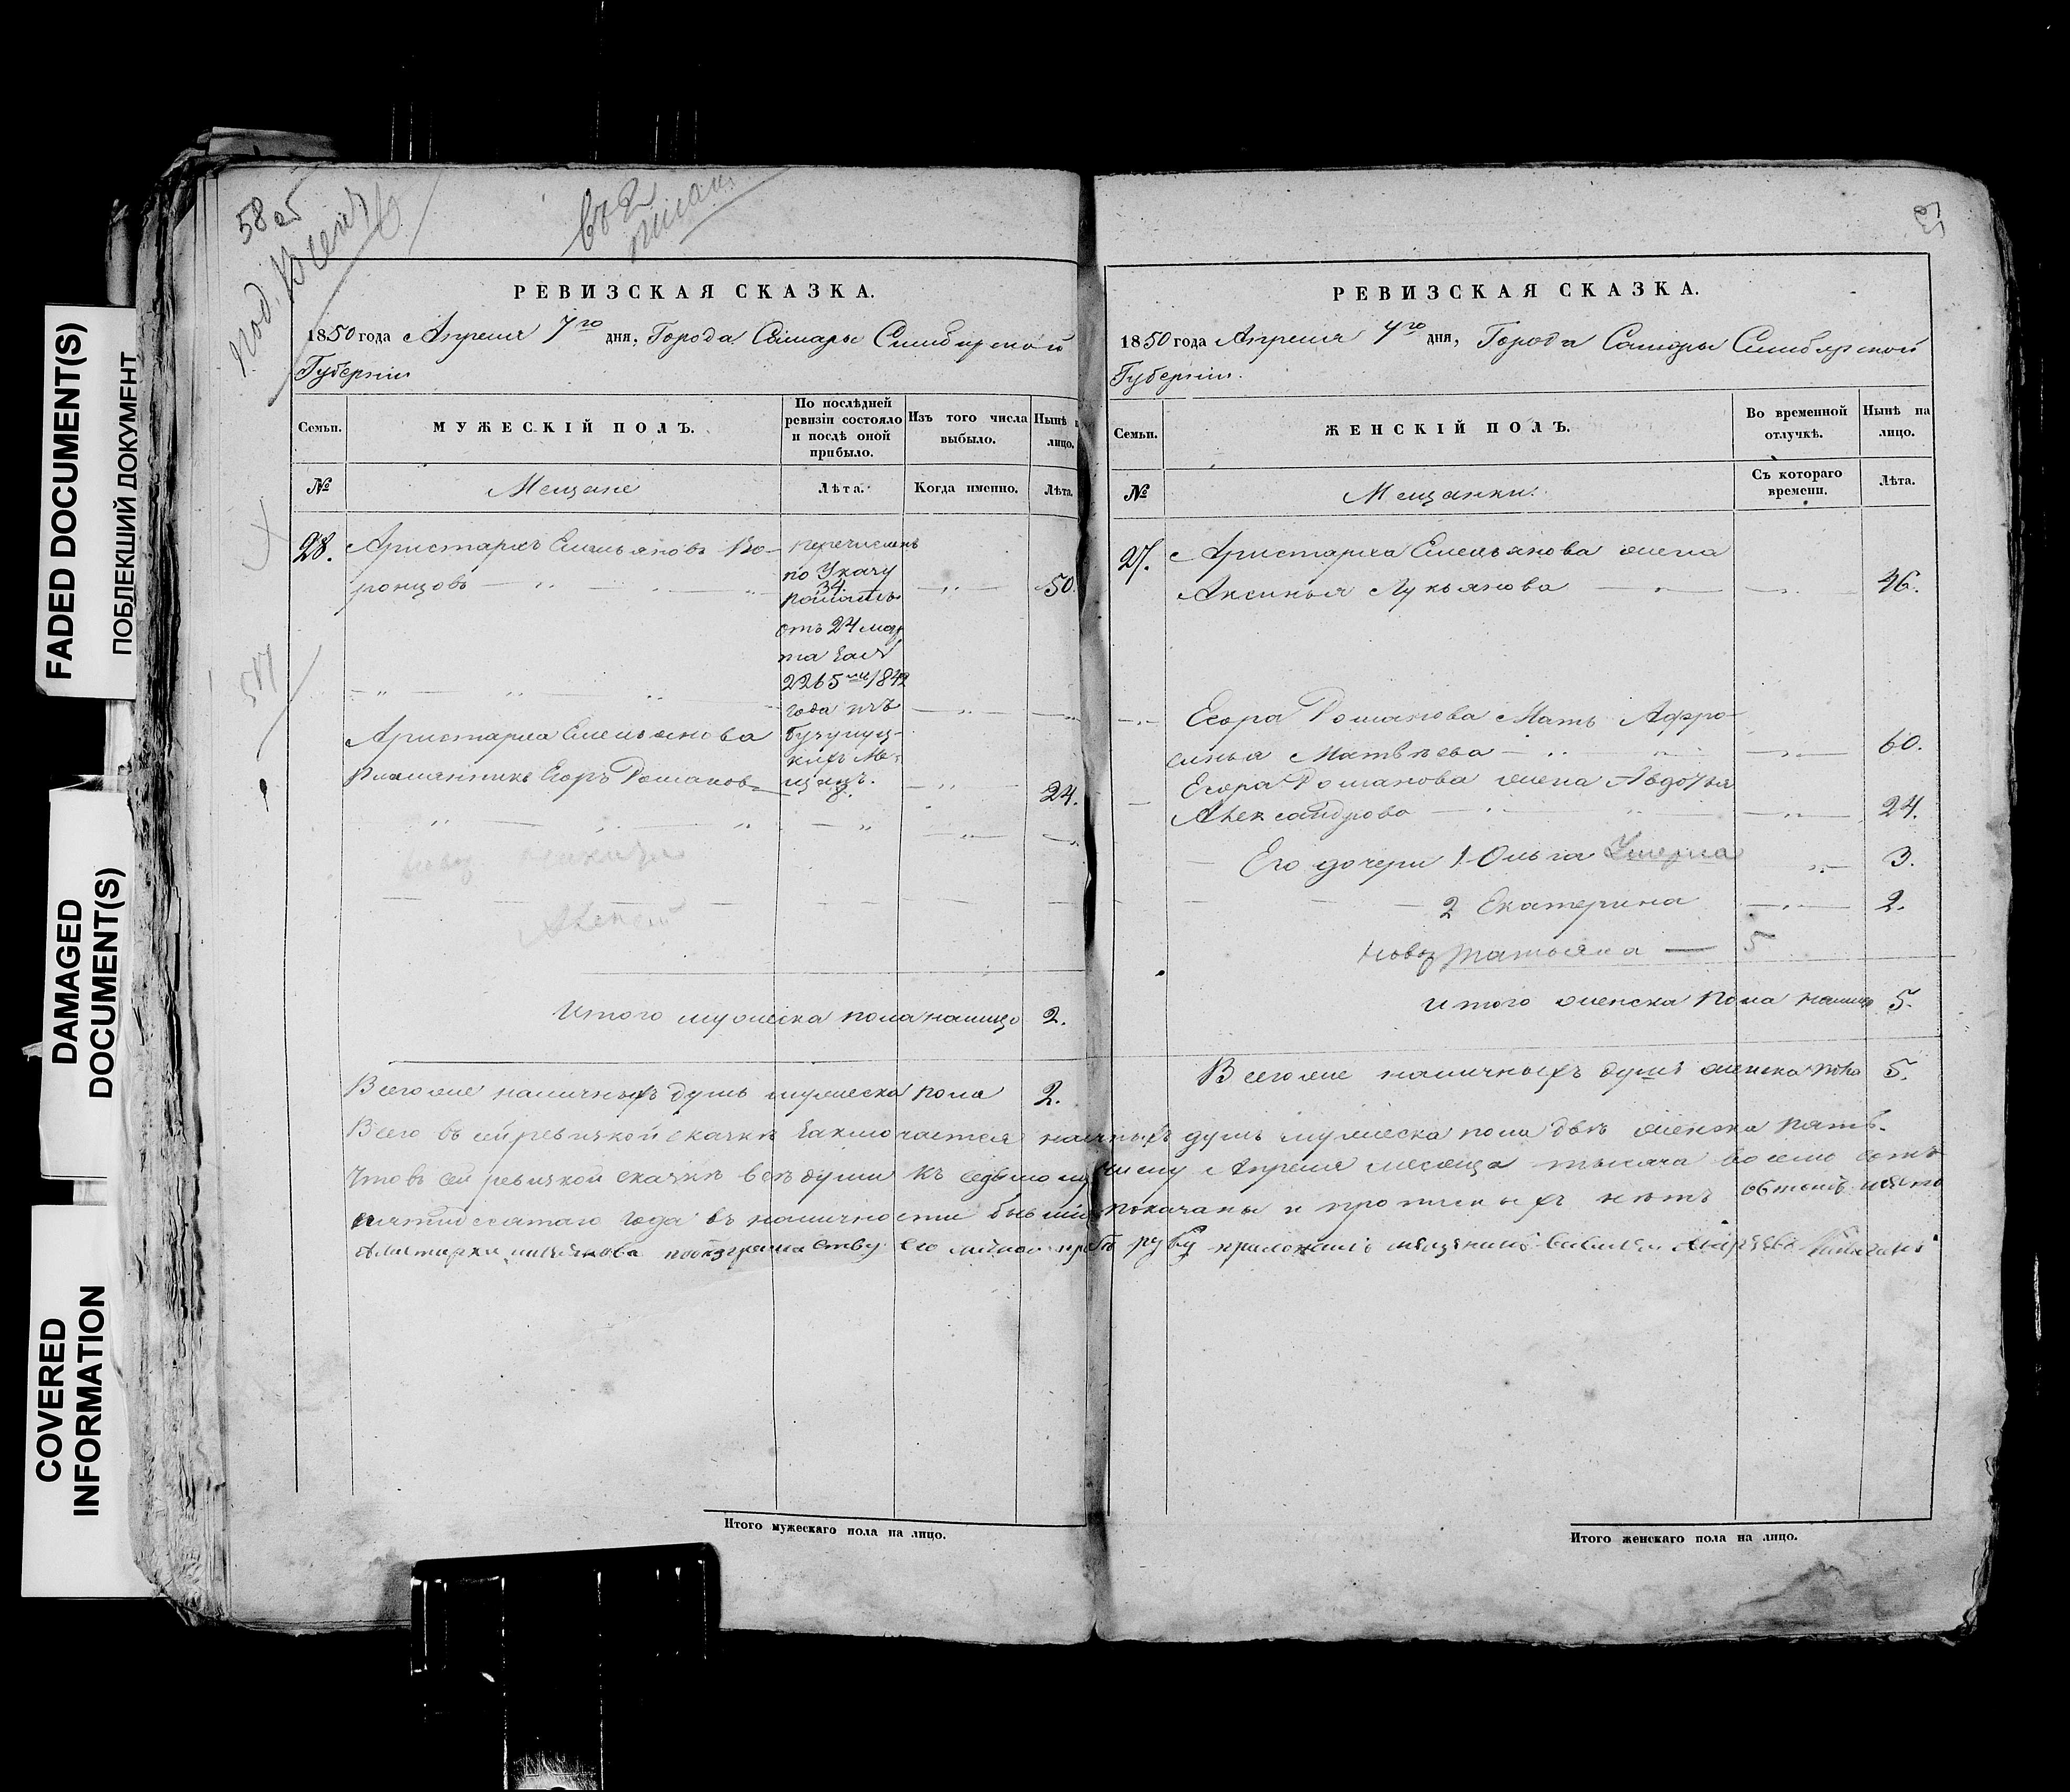 FADED DOCUMENT(S)
ПОБЛЕКШИЙ ДОКУМЕНТ
DAMAGED
DOCUMENT(S)
COVERED
INFORMATION
58 об
РЕВИЗСКАЯ СКАЗКА.
1850 года Апреля 7го дня, Города Самары Симбирской
Губернiи
Семьи.
МУЖЕСКIЙ ПОЛЪ.
По послѣдней
ревизiи состояло
и послѣ оной
прибыло.
Изъ того числа
выбыло.
Нынѣ
лицо.
№
Мещане
Лѣта.
Когда именно.
Лѣта.
28. Аристархъ Емельяновъ Во-
ронцовъ
50.
перечисленъ
по Указу
34
отъ 24 мар
та за №
2265 1842
года изъ
бузулуц-
кихъ Ме-
щанъ.
Аристарха Емельянова
Племянникъ Егоръ Романовъ
24.
Алексей
Итого мужеска пола налицо 2.
Всего же наличныхъ душъ мужеска пола 2.
РЕВИЗСКАЯ СКАЗКА.
1850 года Апреля 7го дня, Города Самары Симбирской
Губернiи.
Семьи.
ЖЕНСКIЙ ПОЛЪ.
Во временной
отлучкѣ.
Нынѣ на
лицо.
№
Мещанки.
Съ котораго
времени.
Лѣта.
27. Аристарха Емельянова жена
Аксинья Лукьянова 46.
Егора Романова Мать Афро-
синья Матвѣева 60.
Егора Романова жена Авдотья
Александрова 24.
Его дочери 1 Ольга Умерла 3.
2 Екатерина 2.
новор Татьяна — 5
Итого женска пола налицо 5.
Всего же наличныхъ душъ женска пола 5.
Всего въ сей ревизкой сказкѣ заключается наличныхъ душъ мужеска пола двѣ женска пять.
Что въ сей ревизкой сказкѣ всѣ души къ седьмому числу Апреля месяца тысяча восемь сотъ
пятидесятаго года въ наличности бывшiя показаны и прописныхъ нѣтъ
руку приложилъ мещанинъ
Итого мужескаго пола на лицо.
Итого женскаго пола на лицо.